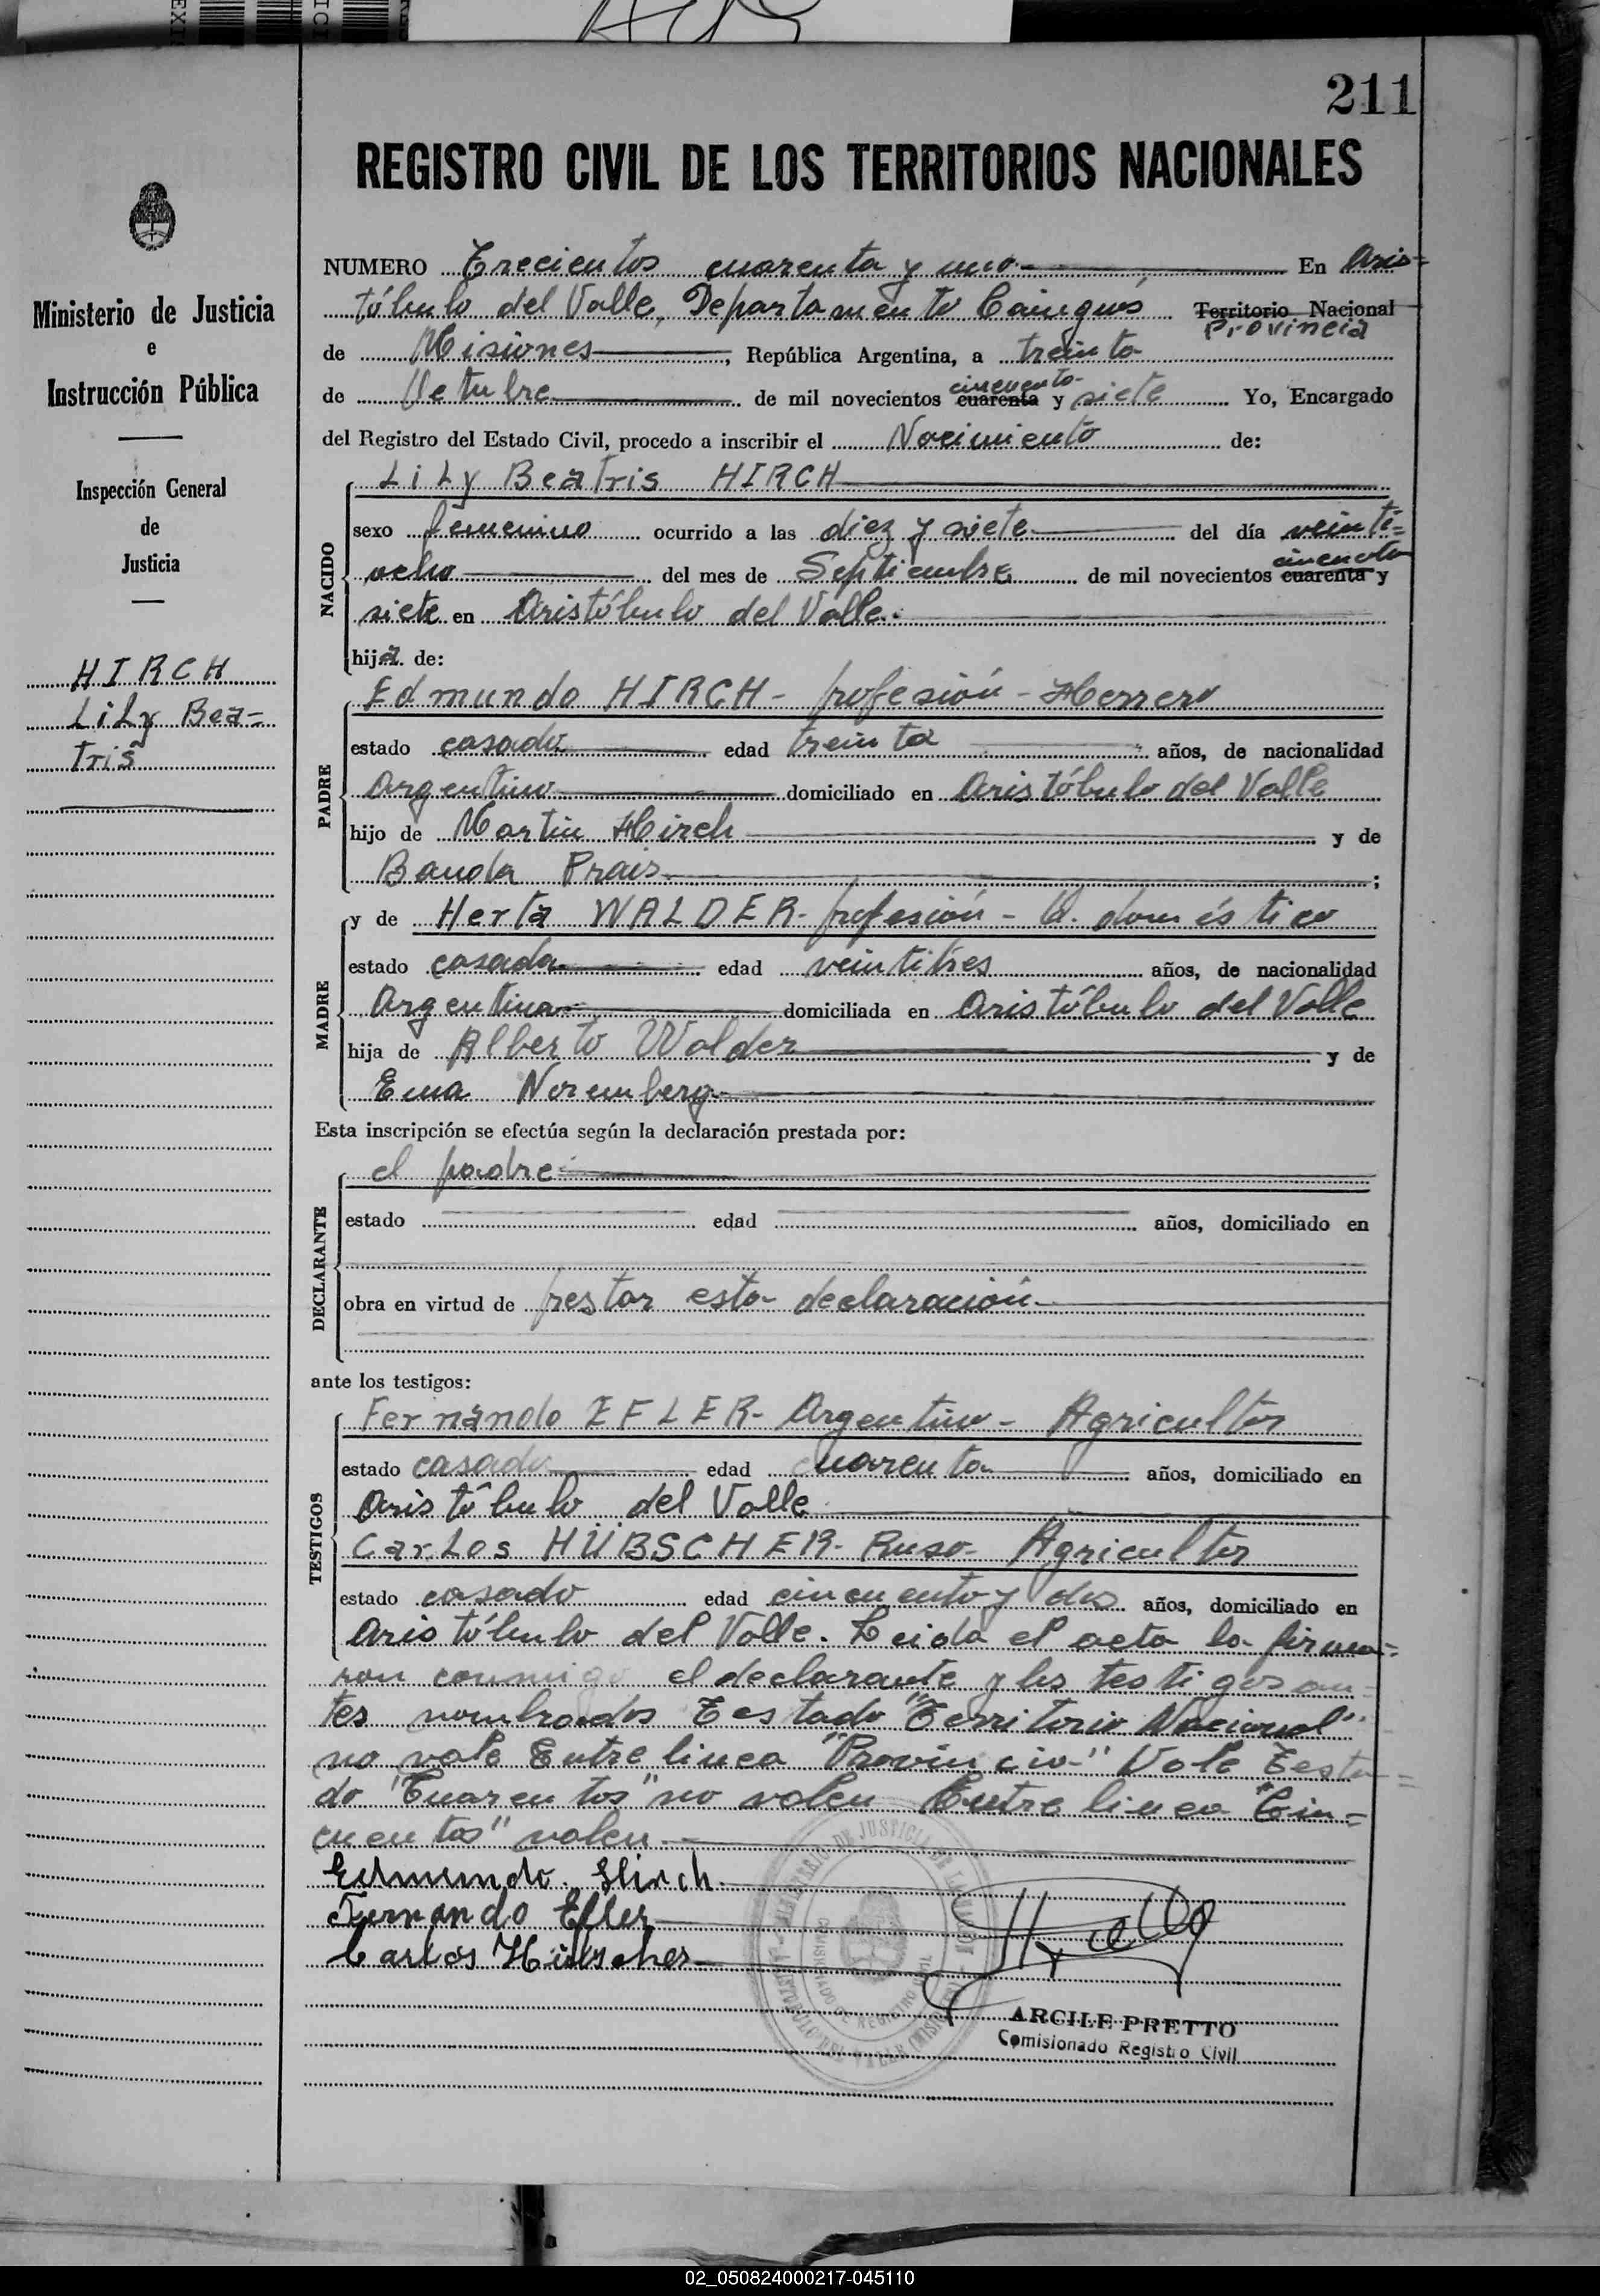 211
REGISTRO CIVIL DE LOS TERRITORIOS NACIONALES
Ministerio de Justicia
e
Instrucción Pública
Inspección General
de
Justicia
HIRCH
Lily Bea=
tris
NUMERO Trecientos cuarenta y uno En Aris=
tóbulo del Valle, Departamento Cainguás Territorio Nacional
Provincia
de Misiones, República Argentina, a treinta
de Octubre de mil novecientos cuarenta cincuenta y siete Yo, Encargado
del Registro del Estado Civil, procedo a inscribir el Nacimiento de:
NACIDO
Lily Beatris HIRCH
sexo femenino ocurrido a las diez y siete del día veinti=
ocho del mes de Septiembre de mil novecientos cuarenta cincuenta y
siete en Aristóbulo del Valle.
hija de:
PADRE
Edmundo HIRCH - profesión - Herrero
estado casado edad treinta años, de nacionalidad
Argentino domiciliado en Aristóbulo del Valle
hijo de Martin Hirch y de
Banda Prais ;
MADRE
y de Herta WALDER - profesión - Q. doméstico
estado casada edad veintitres años, de nacionalidad
Argentina domiciliada en Aristóbulo del Valle
hija de Alberto Walder y de
Ema Noremberg
Esta inscripción se efectúa según la declaración prestada por:
DECLARANTE
el padre
estado edad años, domiciliado en
obra en virtud de prestar esta declaración
ante los testigos:
TESTIGOS
Fernando EFLER - Argentino - Agricultor
estado casado edad cuarenta años, domiciliado en
Aristóbulo del Valle
Carlos HÜBSCHER - Ruso - Agricultor
estado casado edad cincuenta y dos años, domiciliado en
Aristóbulo del Valle. Leida el acta la firma=
ron conmigo el declarante y los testigos an=
tes nombrados Testado "Territorio Nacional"
no vale Entre linea "Provincia" Vale Testa=
do "Cuarentas" no valen Entre linea "Cin=
cuentas" valen.
Edmundo Hirch
Fernando Efler
Carlos Hübscher
MINISTERIO DE JUSTICIA DE LA NACION
COMISIONADO DE REGISTRO CIVIL
ARISTOBULO DEL VALLE (MISIONES)
ARCILE PRETTO
Comisionado Registro Civil
02_050824000217-045110